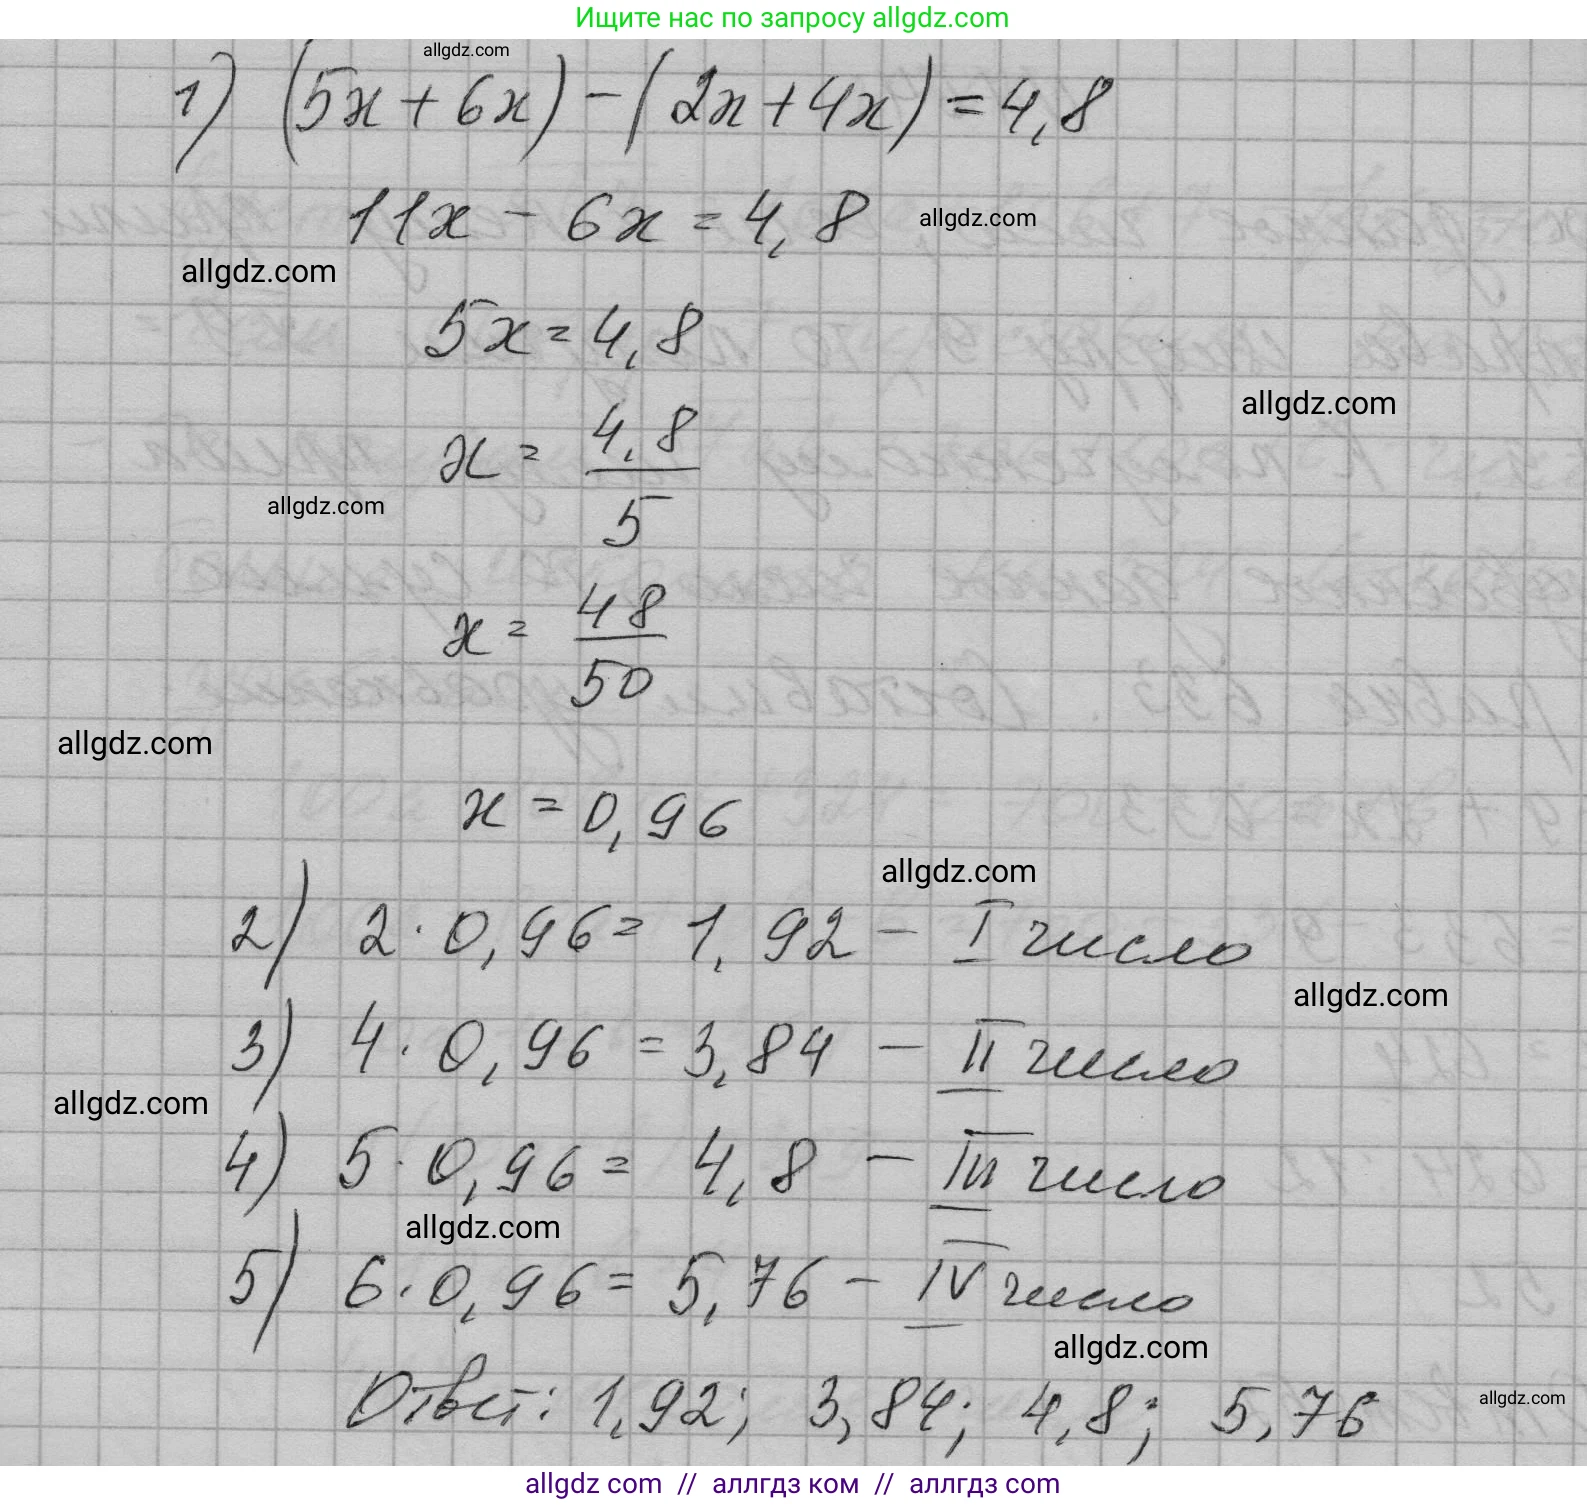 Ищите нас по запросу allgdz.com
allgdz.com
1) (5x + 6x) - (2x + 4x) = 4,8
11x - 6x = 4,8
allgdz.com
allgdz.com
5x = 4,8
allgdz.com
x = 4,8/5
allgdz.com
x = 48/50
allgdz.com
x = 0,96
allgdz.com
2) 2 · 0,96 = 1,92 - I число
allgdz.com
3) 4 · 0,96 = 3,84 - II число
allgdz.com
4) 5 · 0,96 = 4,8 - III число
allgdz.com
5) 6 · 0,96 = 5,76 - IV число
allgdz.com
Ответ: 1,92; 3,84; 4,8; 5,76
allgdz.com
allgdz.com // аллгдз ком // аллгдз com